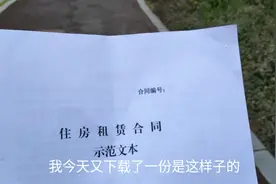 合同编号：
住房租赁合同
示范文本
我今天又下载了一份是这样子的